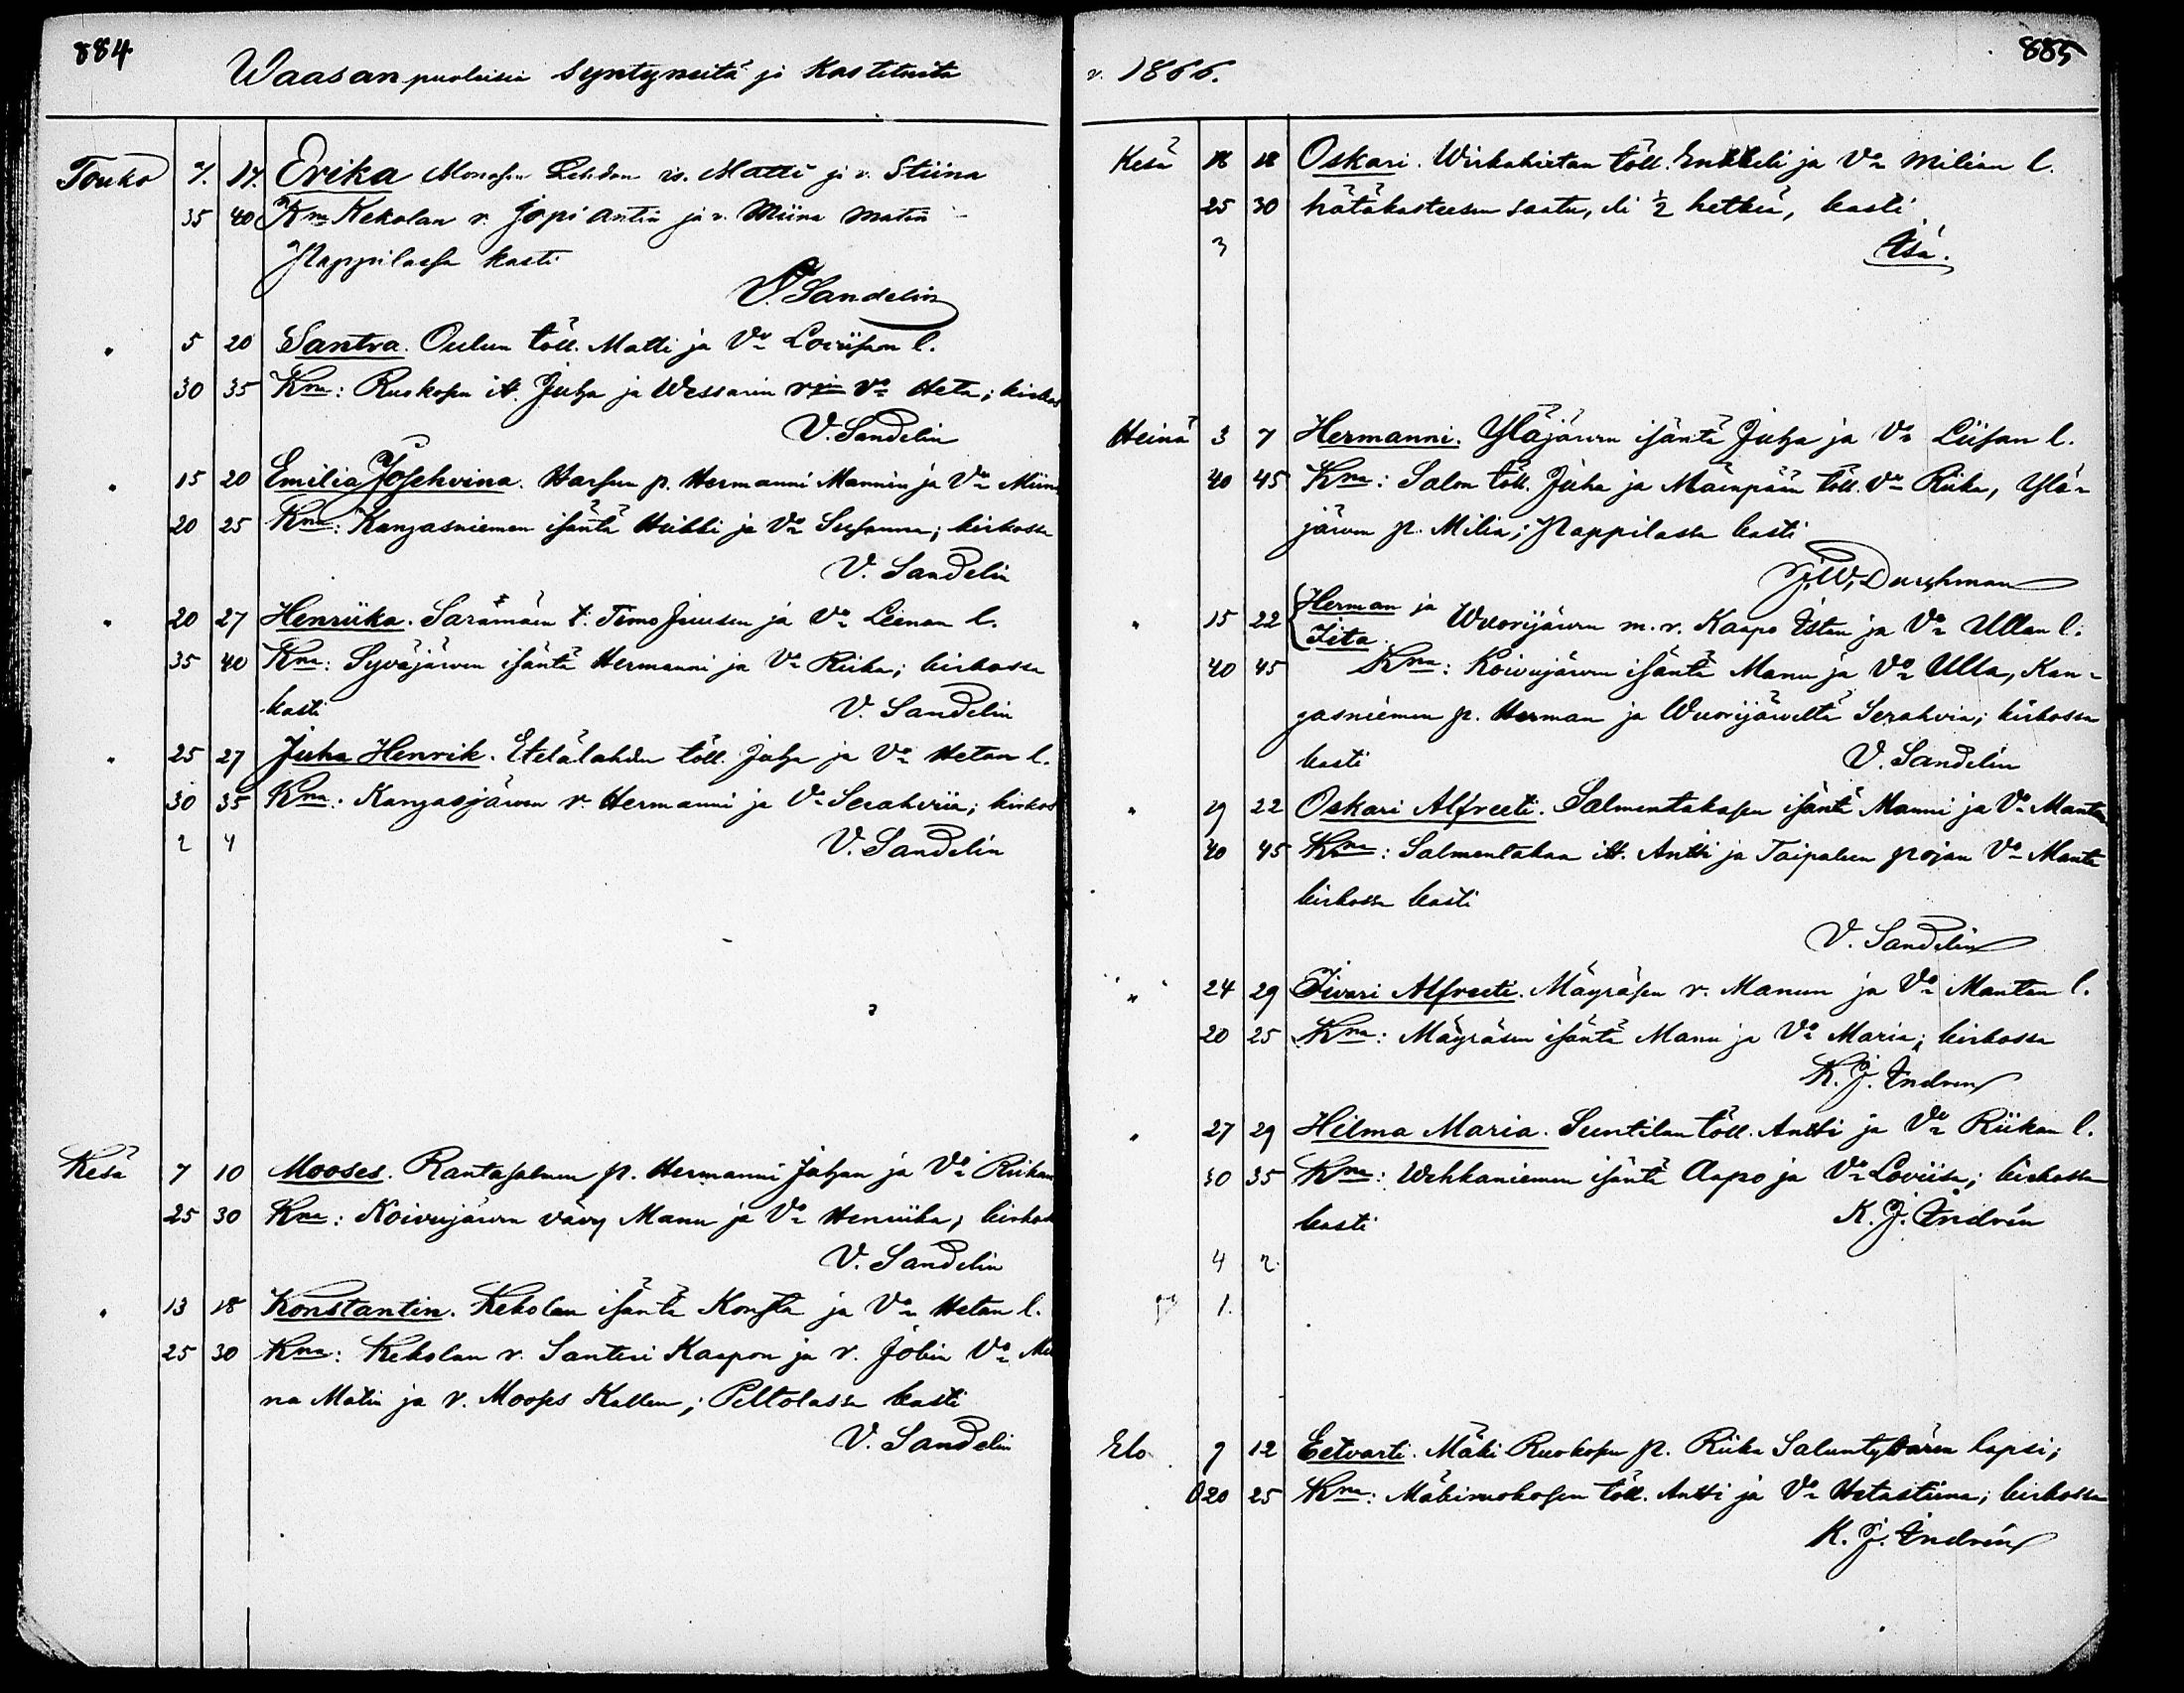 884
Waasan puolisia syntyneitä ja kastetuita
Touko 7. 17. Erika Monosen Lehdon is. Matti ja v. Stiina
35 40 Km Kekolan v. Jopi Antin ja v. Miina Matin
Pappilassa kasti
V. Sandelin
" 5 20 Santra. Oulun töll. Matti ja Vo Loviisan l.
30 35 Km: Ruokosen it. Juha ja Wessarin Vo Heta; kirkos
V. Sandelin
" 15 20 Emilia Josehvina. Harsun p. Hermanni Mannin ja Vo Miin
20 25 Km: Kangasniemen isäntä Heikki ja Vo Susanna; kirkossa
V. Sandelin
" 20 27 Henriika. Saramäen t: Timo Juusen ja Vo Leenan l.
35 40 Km: Syväjärwen isäntä Hermanni ja Vo Riika; kirkossa
kasti V. Sandelin
" 25 27 Juha Henrik. Etelälahden töll. Juha ja Vo Hetan l.
30 35 Km: Kangasjärwen v. Hermanni ja Vo Serahviia; kirkos
2 4 V. Sandelin
Kesä 7 10 Mooses. Rantasalmen p. Hermanni Juhan ja Vo Riikan
25 30 Km: Koivujärwen vävy Manu ja Vo Henriika; kirkos
V. Sandelin
" 13 18 Konstantin. Kekolan isäntä Konsta ja Vo Hetan l.
25 30 Km: Kekolan v. Santeri Kaapon ja v. Jobin Vo Mii
na Matin ja v. Mooses Kallen; Peltolassa kasti
V. Sandelin
v. 1866. 885
Kesä 18 18 Oskari. Wirkahietan töll. Enkkeli ja Vo Milian l.
25 30 hätäkasteesen saatu, eli ½ hetkiä, kasti
3 Isä.
Heinä 3 7 Hermanni. Yläjärwen isäntä Juha ja Vo Liisan l.
40 45 Km: Salon töll. Juha ja Mäenpään töll. Vo Riika, Ylä-
järwen p. Milia; Pappilassa kasti
J. W. Durchman
" 15 22 Herman ja Iita. Wuorijärwen m. v. Kaapo Istan ja Vo Ullan l.
40 45 Km: Koivujärwen isäntä Manu ja Vo Ulla, Kan-
gasniemen p. Herman ja Wuorijärweltä Serahvia; kirkossa
kasti V. Sandelin
" 19 22 Oskari Alfreeti. Salmentakasen isäntä Manni ja Vo Mantan
40 45 Km: Salmentakaa itt. Antti ja Taipaleen pojan Vo Manta
kirkossa kasti
V. Sandelin
" 24 29 Iivari Alfreeti. Mäyräsen v. Manun ja Vo Mantan l.
20 25 Km: Mäyräsen isäntä Manu ja Vo Maria; kirkossa
K. J. Indren
" 27 29 Hilma Maria. Suntilan töll. Antti ja Vo Riikan l.
30 35 Km: Wehkaniemen isäntä Aapo ja Vo Loviisa; kirkossa
kasti K. J. Indrén
4 2
1.
Elo 9 12 Eetvarti. Mäki Ruokosen p. Riika Saluntyttären lapsi;
20 25 Km: Mäkiruokosen töll. Antti ja Vo Hetastiina; kirkossa
K. J. Indrén